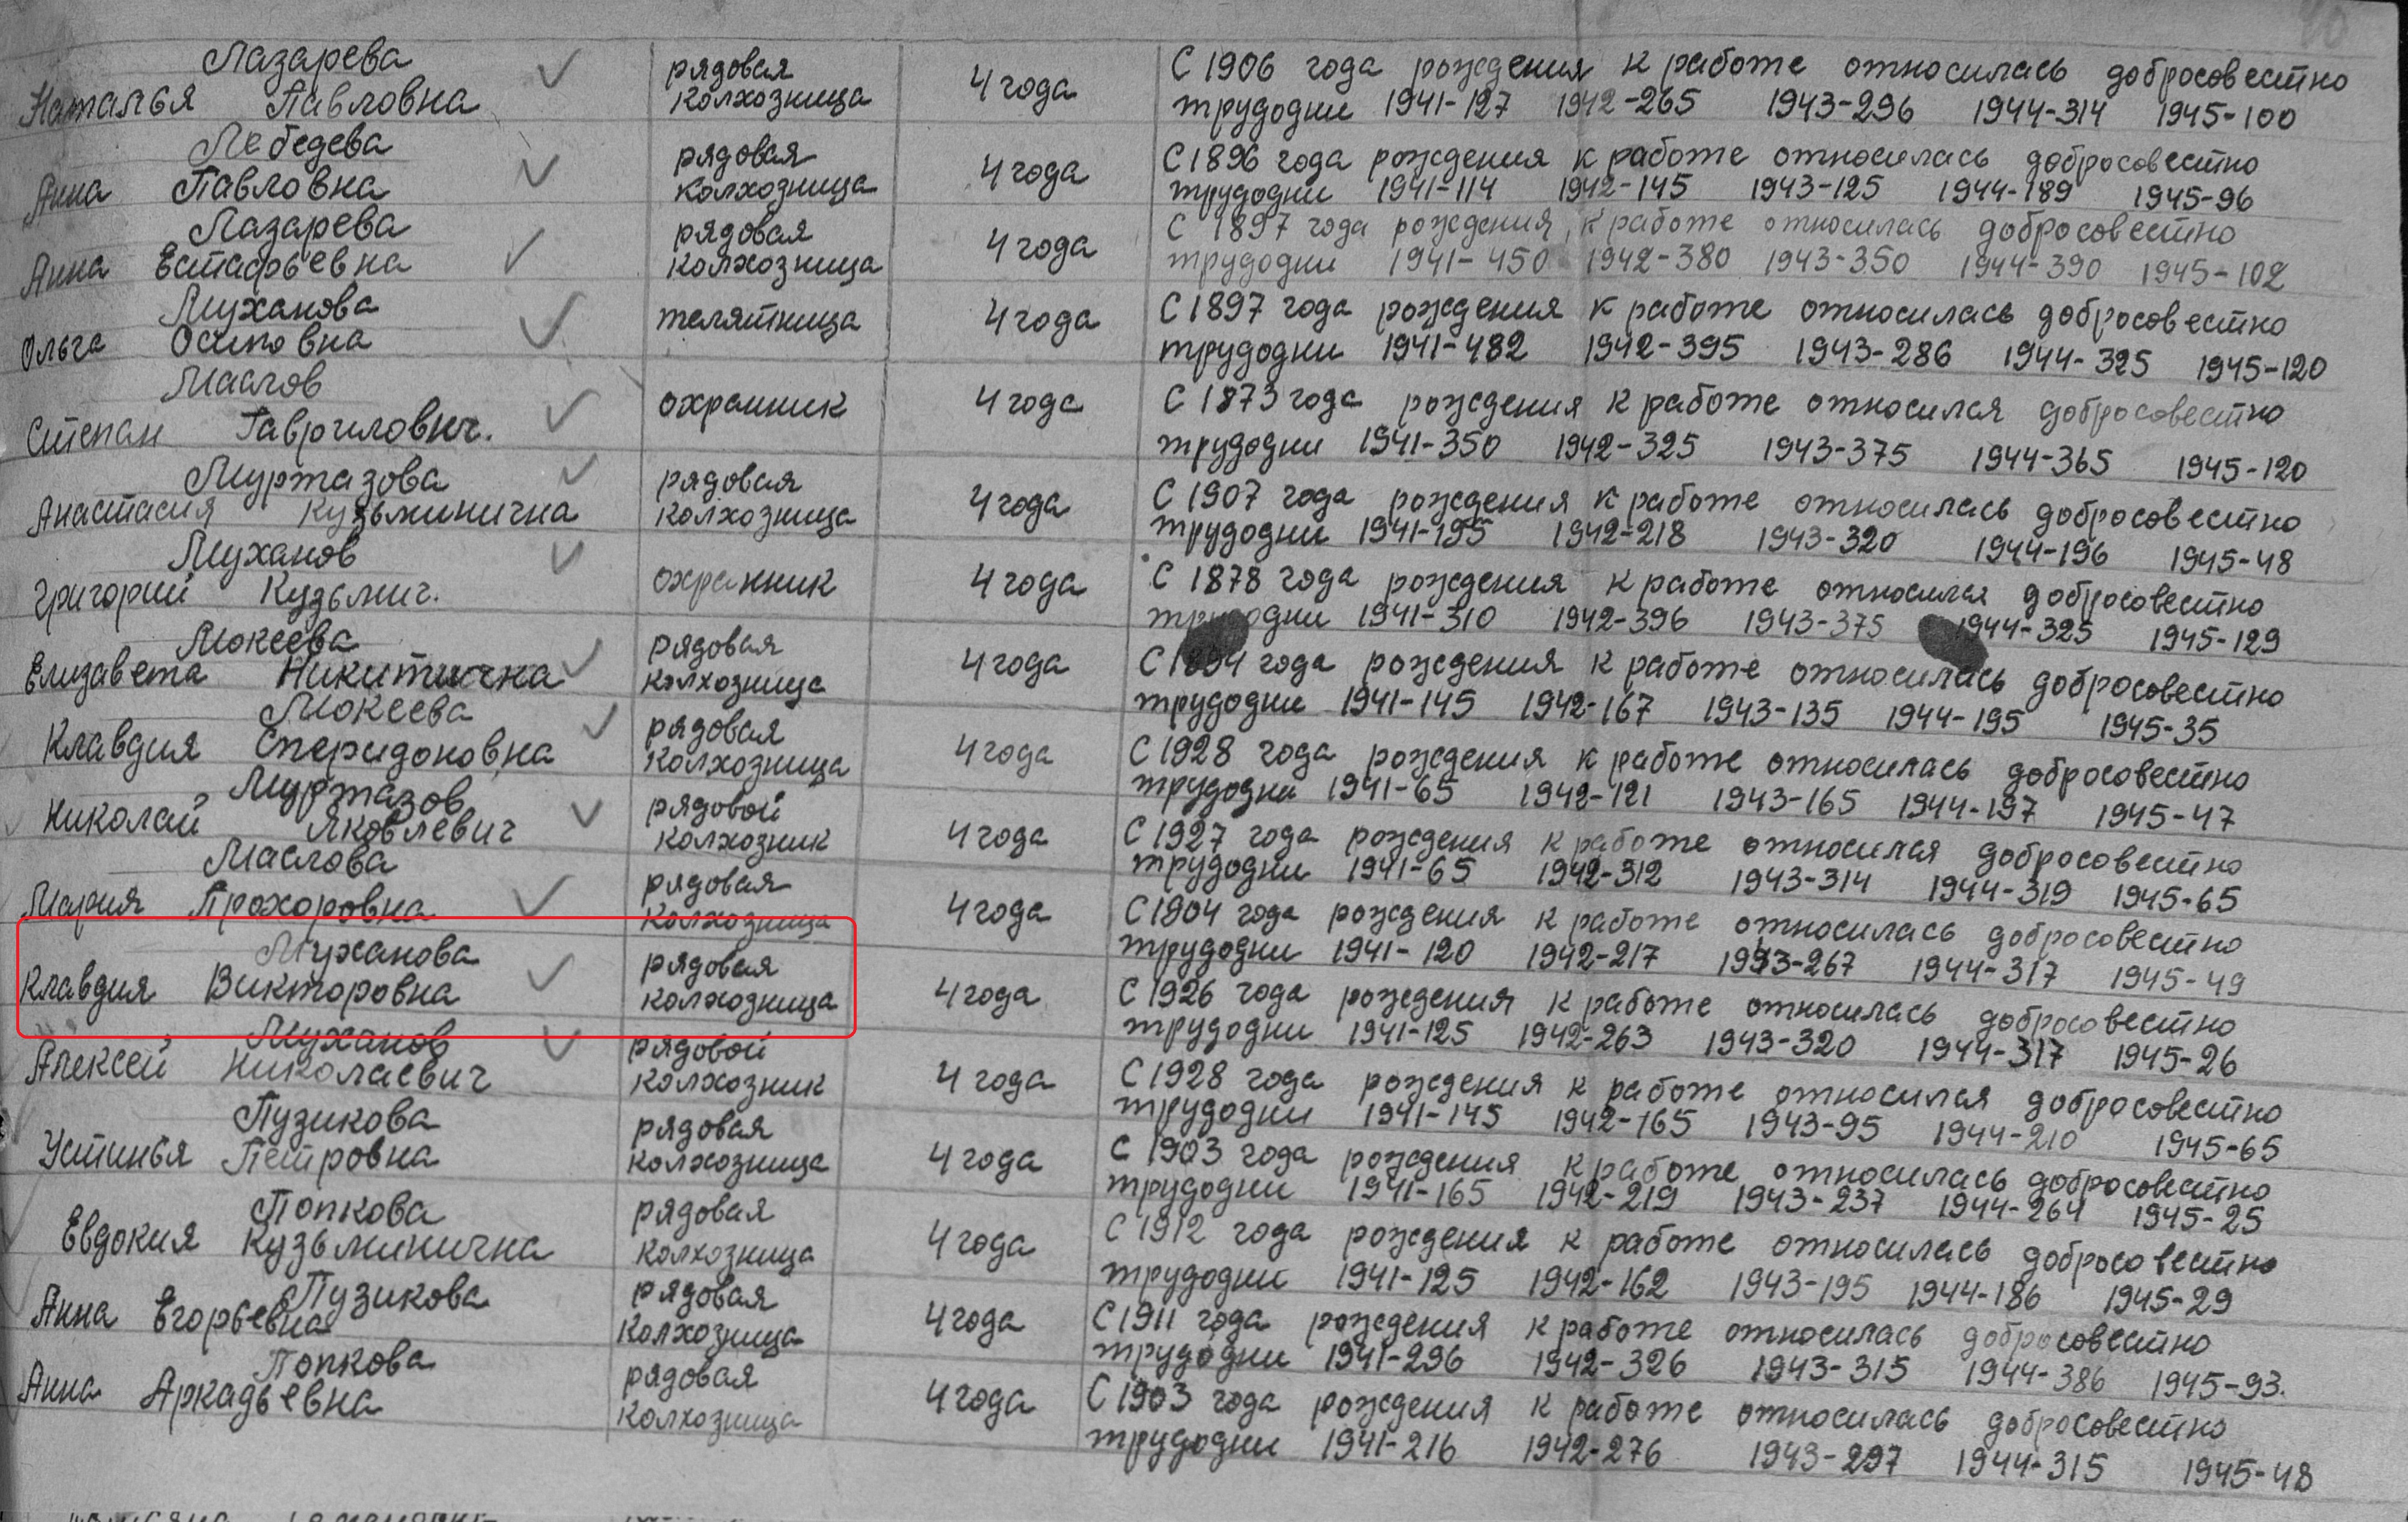 40
Лазарева
Наталья Павловна
рядовая
колхозница
4 года
С 1906 года рождения к работе относилась добросовестно
трудодни 1941-127 1942-265 1943-296 1944-314 1945-100
Лебедева
Анна Павловна
рядовая
колхозница
4 года
С 1896 года рождения к работе относилась добросовестно
трудодни 1941-114 1942-145 1943-125 1944-189 1945-96
Лазарева
Анна Естафьевна
рядовая
колхозница
4 года
С 1897 года рождения, к работе относилась добросовестно
трудодни 1941-450 1942-380 1943-350 1944-390 1945-102
Муханова
Ольга Осиповна
телятница
4 года
С 1897 года рождения к работе относилась добросовестно
трудодни 1941-482 1942-395 1943-286 1944-325 1945-120
Маслов
Степан Гаврилович.
охранник
4 года
С 1873 года рождения к работе относился добросовестно
трудодни 1941-350 1942-325 1943-375 1944-365 1945-120
Муртазова
Анастасия Кузьминична
рядовая
колхозница
4 года
С 1907 года рождения к работе относилась добросовестно
трудодни 1941-195 1942-218 1943-320 1944-196 1945-48
Муханов
Григорий Кузьмич.
охранник
4 года
С 1878 года рождения к работе относился добросовестно
трудодни 1941-310 1942-396 1943-375 1944-325 1945-129
Мокеева
Елизавета Никитична
рядовая
колхозница
4 года
С 1894 года рождения к работе относилась добросовестно
трудодни 1941-145 1942-167 1943-135 1944-195 1945-35
Мокеева
Клавдия Сперидоновна
рядовая
колхозница
4 года
С 1928 года рождения к работе относилась добросовестно
трудодни 1941-65 1942-121 1943-165 1944-197 1945-47
Муртазов
Николай Яковлевич
рядовой
колхозник
4 года
С 1927 года рождения к работе относился добросовестно
трудодни 1941-65 1942-312 1943-314 1944-319 1945-65
Маслова
Мария Прохоровна
рядовая
колхозница
4 года
С 1904 года рождения к работе относилась добросовестно
трудодни 1941-120 1942-217 1943-267 1944-317 1945-49
Муханова
Клавдия Викторовна
рядовая
колхозница
4 года
С 1926 года рождения к работе относилась добросовестно
трудодни 1941-125 1942-263 1943-320 1944-317 1945-26
Муханов
Алексей Николаевич
рядовой
колхозник
4 года
С 1928 года рождения к работе относился добросовестно
трудодни 1941-145 1942-165 1943-95 1944-210 1945-65
Пузикова
Устинья Петровна
рядовая
колхозница
4 года
С 1903 года рождения к работе относилась добросовестно
трудодни 1941-165 1942-219 1943-237 1944-264 1945-25
Попкова
Евдокия Кузьминична
рядовая
колхозница
4 года
С 1912 года рождения к работе относилась добросовестно
трудодни 1941-125 1942-162 1943-195 1944-186 1945-29
Пузикова
Анна Егорьевна
рядовая
колхозница
4 года
С 1911 года рождения к работе относилась добросовестно
трудодни 1941-296 1942-326 1943-315 1944-386 1945-93.
Попкова
Анна Аркадьевна
рядовая
колхозница
4 года
С 1903 года рождения к работе относилась добросовестно
трудодни 1941-216 1942-276 1943-297 1944-315 1945-48